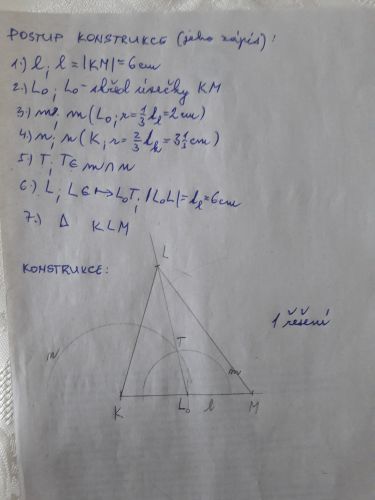 POSTUP KONSTRUKCE (jeho zápis):
1.) l; l = |KM| = 6cm
2.) L₀; L₀ - střed úsečky KM
3.) m; m (L₀; r = 1/3 t_l = 2cm)
4.) n; n (K; r = 2/3 t_k = 3 1/3 cm)
5.) T; T ∈ m ∩ n
6.) L; L ∈ ↦ L₀T; |L₀L| = t_l = 6cm
7.) Δ KLM
KONSTRUKCE:
L
1 řešení
n
T
m
K
L₀
l
M